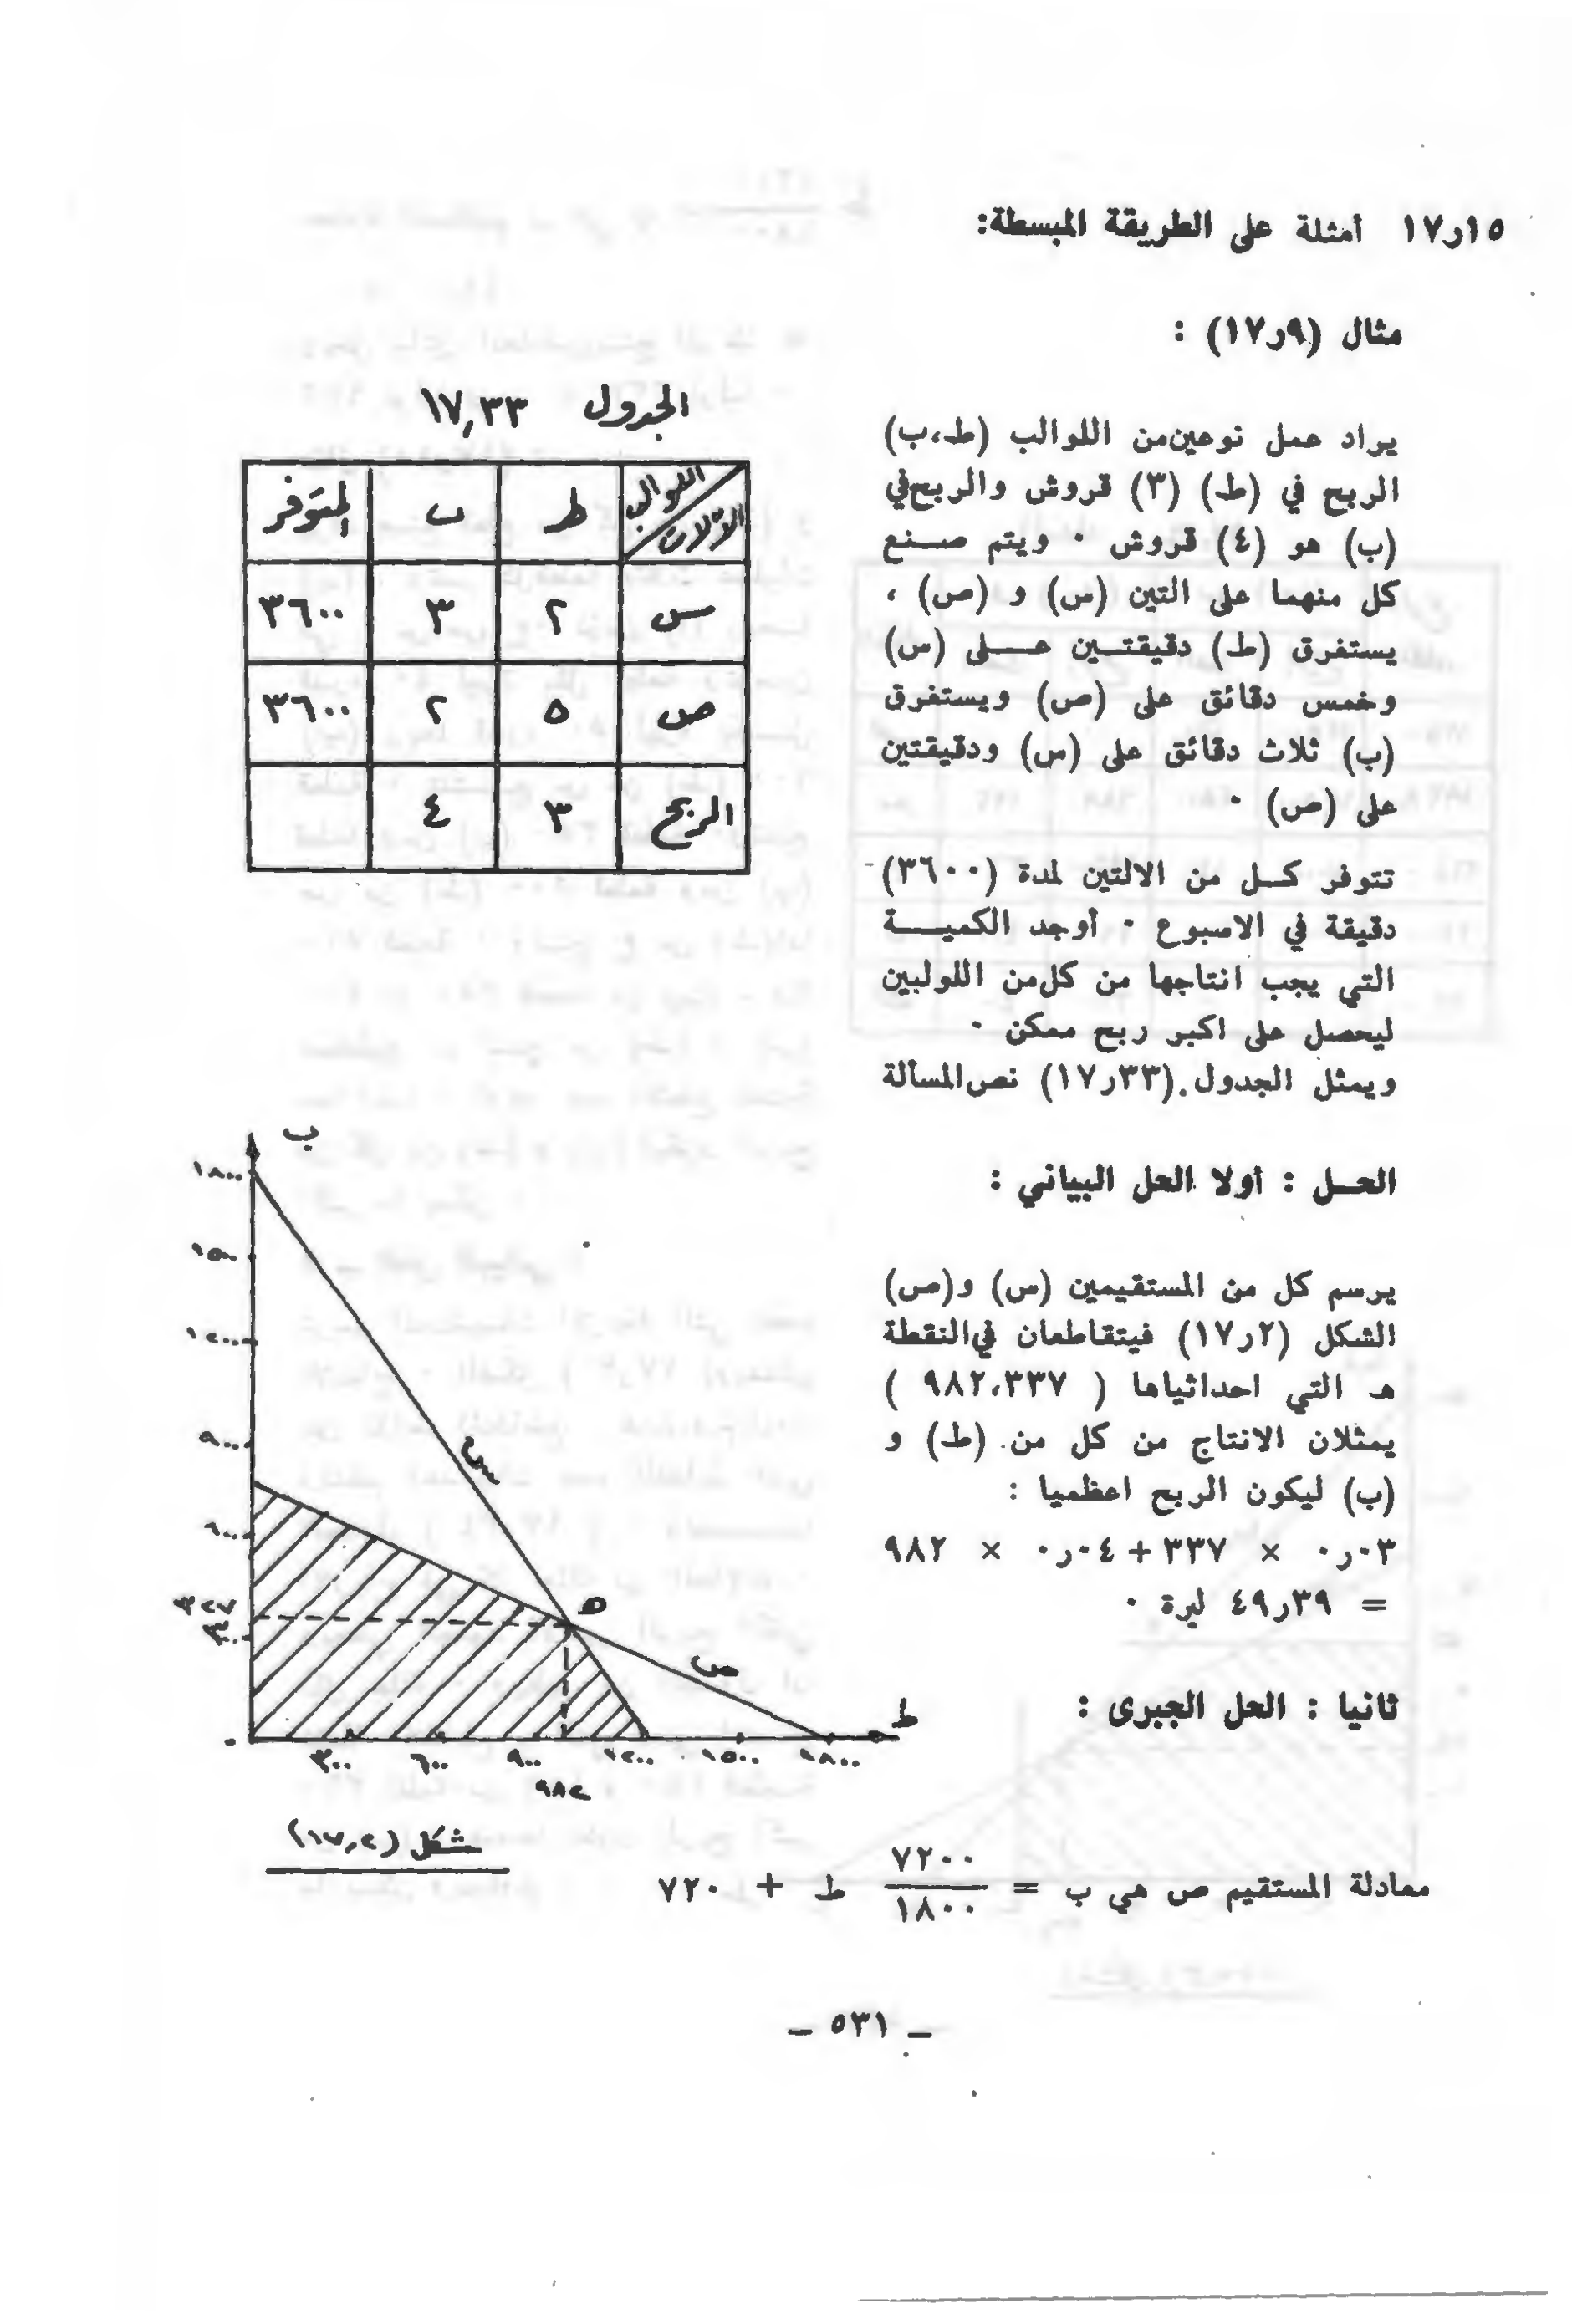 ١٧ر١٥ أمثلة على الطريقة المبسطة:
مثال (١٧ر٩) :
يراد عمل نوعين من اللوالب (ط،ب)
الربح في (ط) (٣) قروش والربح في
(ب) هو (٤) قروش ٠ ويتم صنع
كل منهما على التين (س) و (ص) ،
يستفرق (ط) دقيقتين على (س)
وخمس دقائق على (ص) ويستفرق
(ب) ثلاث دقائق على (س) ودقيقتين
على (ص) ٠
تتوفر كل من الالتين لمدة (٣٦٠٠)
دقيقة في الاسبوع ٠ أوجد الكمية
التي يجب انتاجها من كل من اللولبين
ليحصل على اكبر ربح ممكن ٠
ويمثل الجدول (١٧ر٣٣) نص المسألة
الجدول ١٧,٣٣
اللوالب الآلات ط ب المتوفر
س ٢ ٣ ٣٦٠٠
ص ٥ ٢ ٣٦٠٠
الربح ٣ ٤
الحل : أولا الحل البياني :
يرسم كل من المستقيمين (س) و(ص)
الشكل (١٧ر٢) فيتقاطعان في النقطة
هـ التي احداثياها ( ٩٨٢،٣٣٧ )
يمثلان الانتاج من كل من (ط) و
(ب) ليكون الربح اعظميا :
٠ر٠٣ × ٣٣٧ + ٠ر٠٤ × ٩٨٢
= ٤٩ر٣٩ ليرة ٠
ب
١٨٠٠
١٥٠٠
١٢٠٠
٩٠٠
٦٠٠
٣٣٧
٣٠٠
٠
س
هـ
ص
ط
٣٠٠ ٦٠٠ ٩٠٠ ١٢٠٠ ١٥٠٠ ١٨٠٠
٩٨٢
شكل (١٧,٢)
ثانيا : الحل الجبرى :
معادلة المستقيم ص هي ب = ٧٢٠٠/١٨٠٠ ط + ٧٢٠
– ٥٣١ –